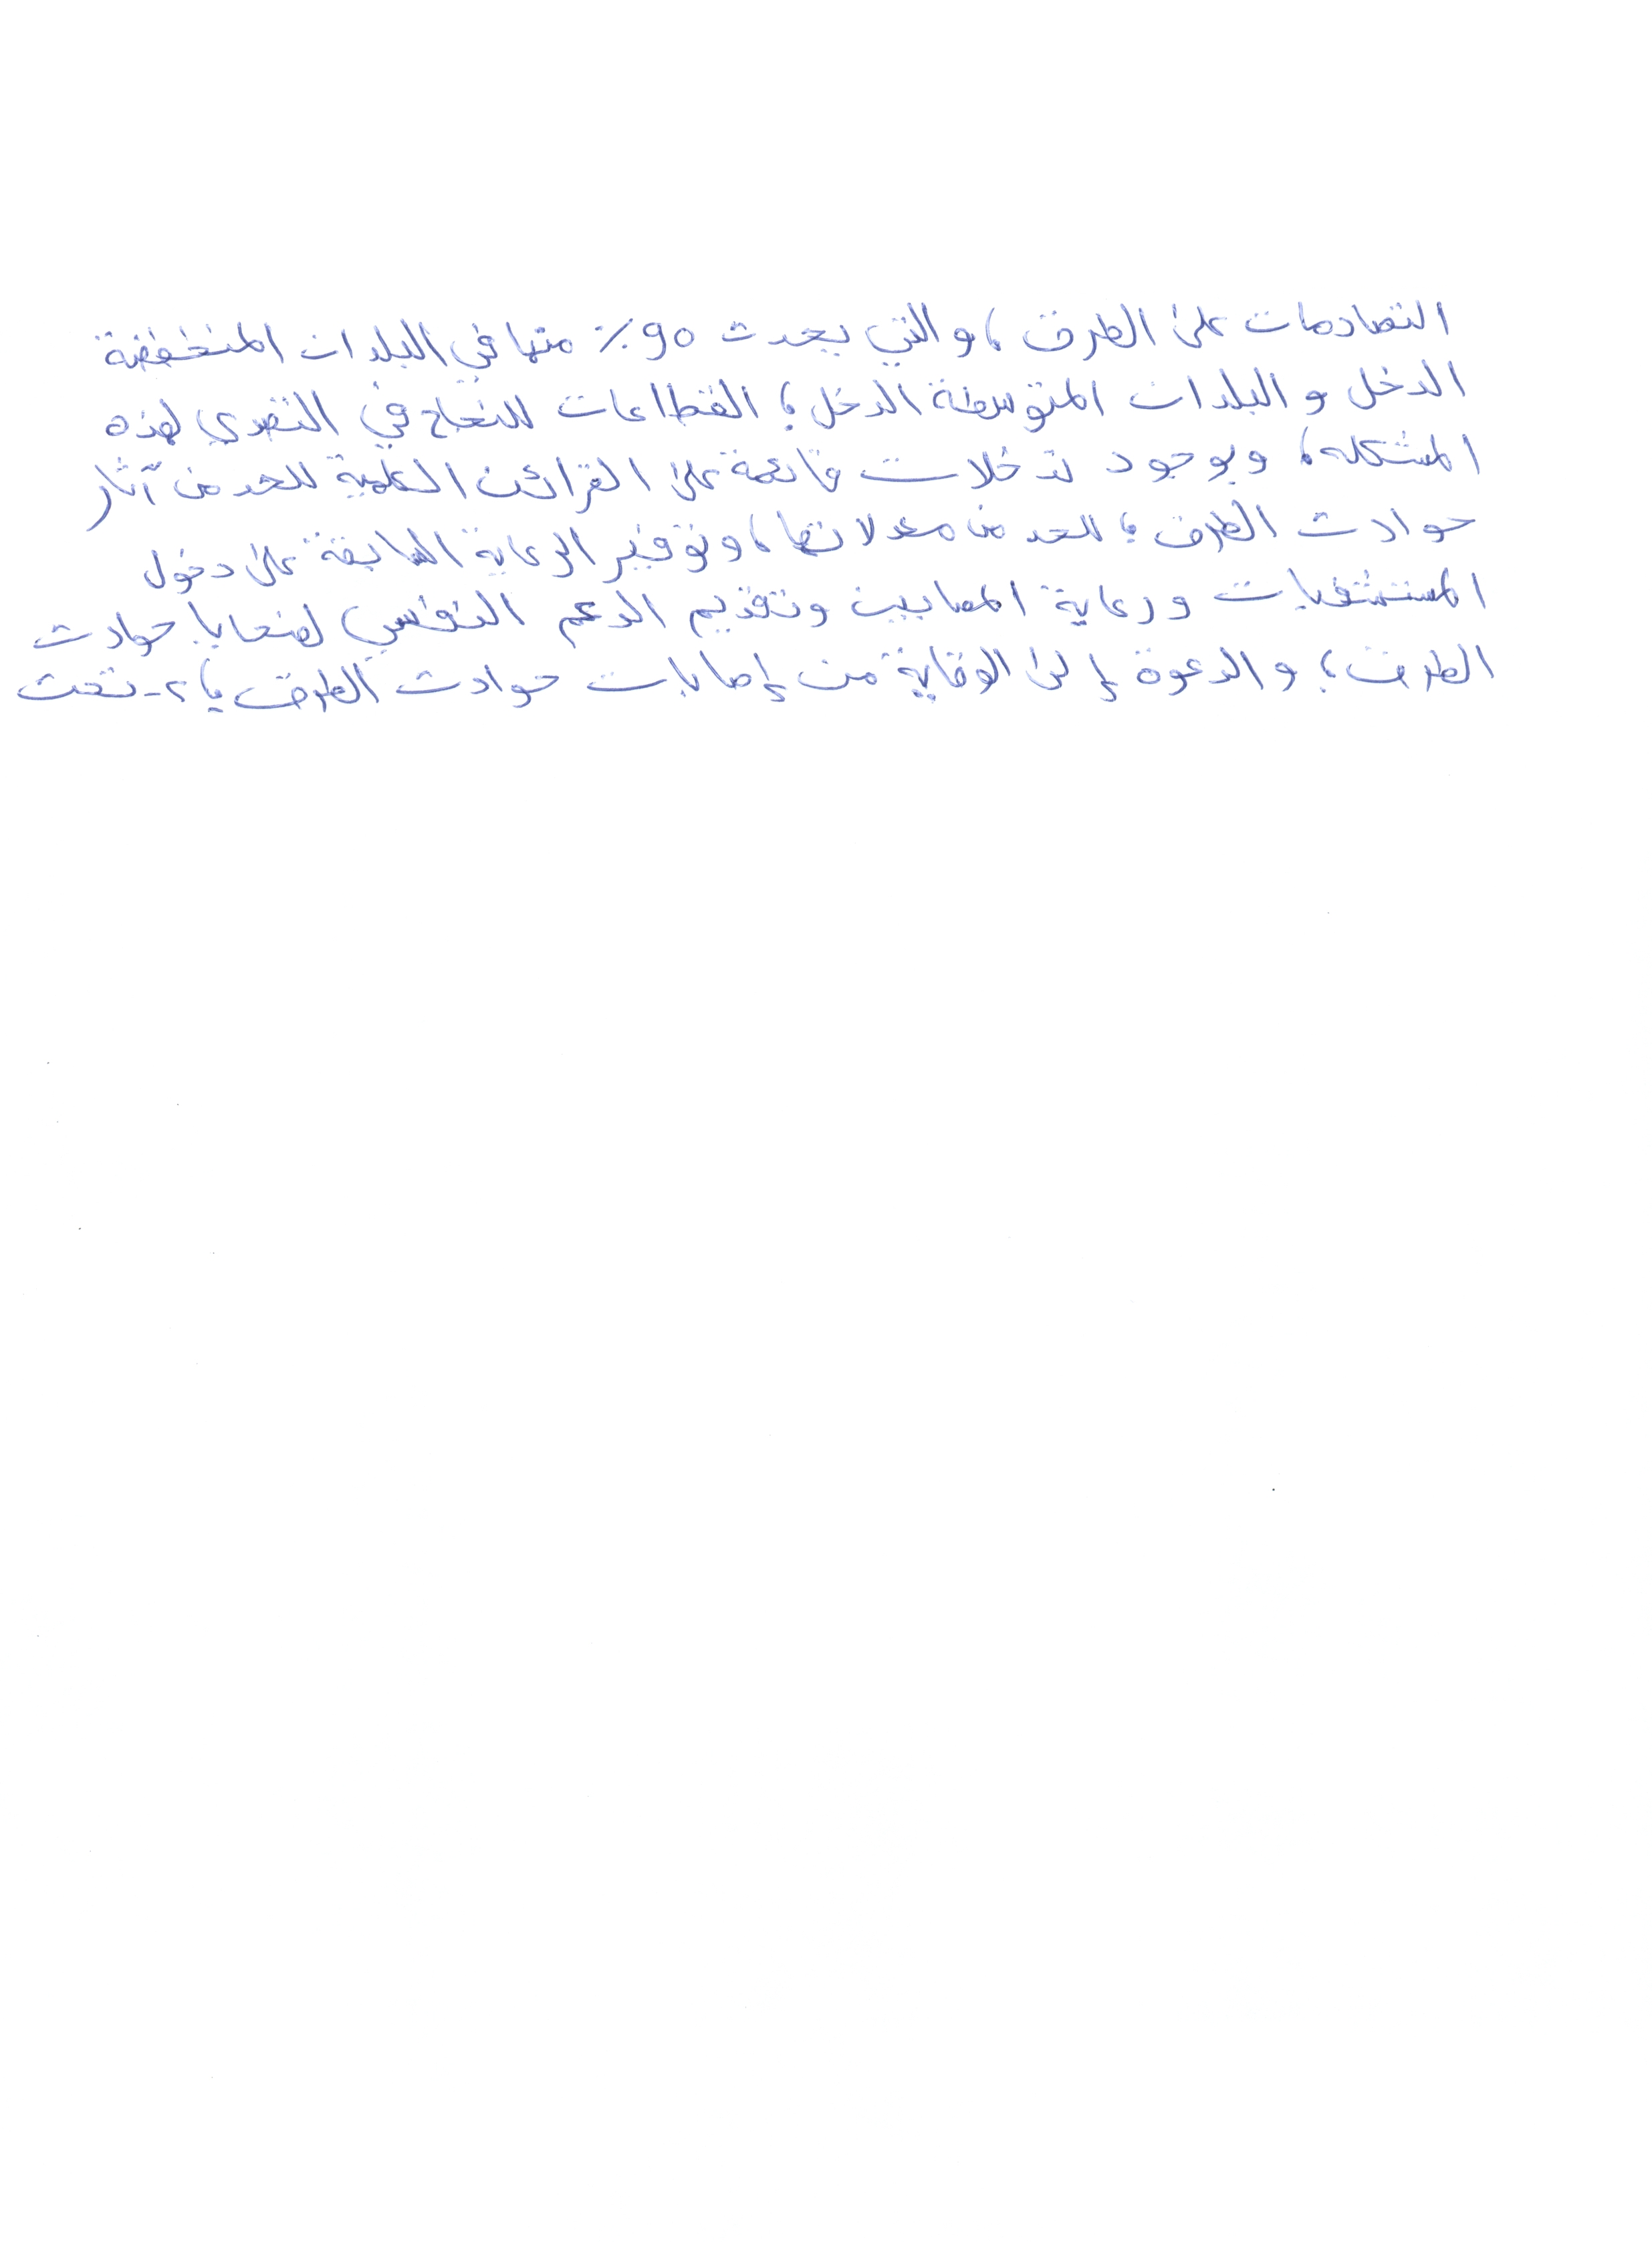 التصادمات على الطرق ، والتي يحدث 90% منها في البلدان المنخفضة
الدخل و البلدان المتوسطة الدخل ؛ القطاعات للنجاح في التصدي لهذه
المشكله ، وبوجود تدخلات قائمة على القرائن العلمية للحد من آثار
حوادث الطرق ؛ للحد من معدلاتها ، وتوفير الرعاية السابقة على دخول
المستشفيات ورعاية المصابين وتقديم الدعم النفسي لضحايا حوادث
الطرق ؛ والدعوة إلى الوقاية من إصابات حوادث الطرق ؛ 2- تحت